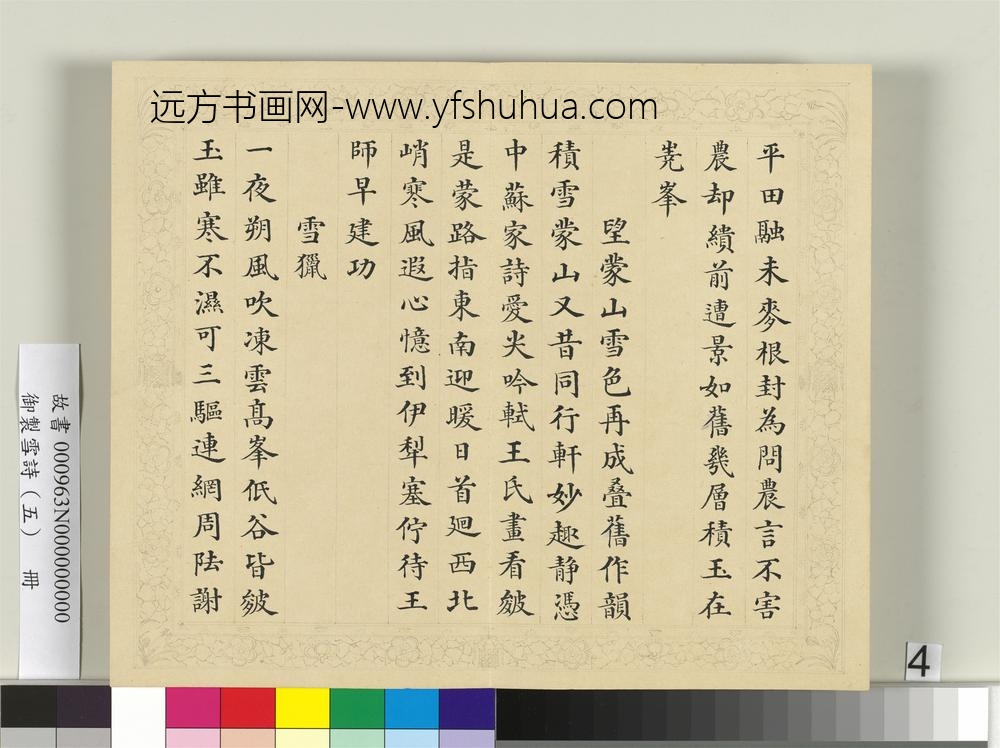 远方书画网-www.yfshuhua.com
平田融未麥根封為問農言不害
農却繢前遭景如舊幾層積玉在
嵳峯
望蒙山雪色再成叠舊作韻
積雪蒙山又昔同行軒妙趣静憑
中蘇家詩愛尖吟軾王氏畫看皴
是蒙路指東南迎暖日首廻西北
峭寒風遐心憶到伊犁塞佇待王
師早建功
雪獵
一夜朔風吹凍雲髙峯低谷皆皴
玉雖寒不濕可三驅連網周阹謝
故書 000963N000000000
御製雪詩（五） 冊
4